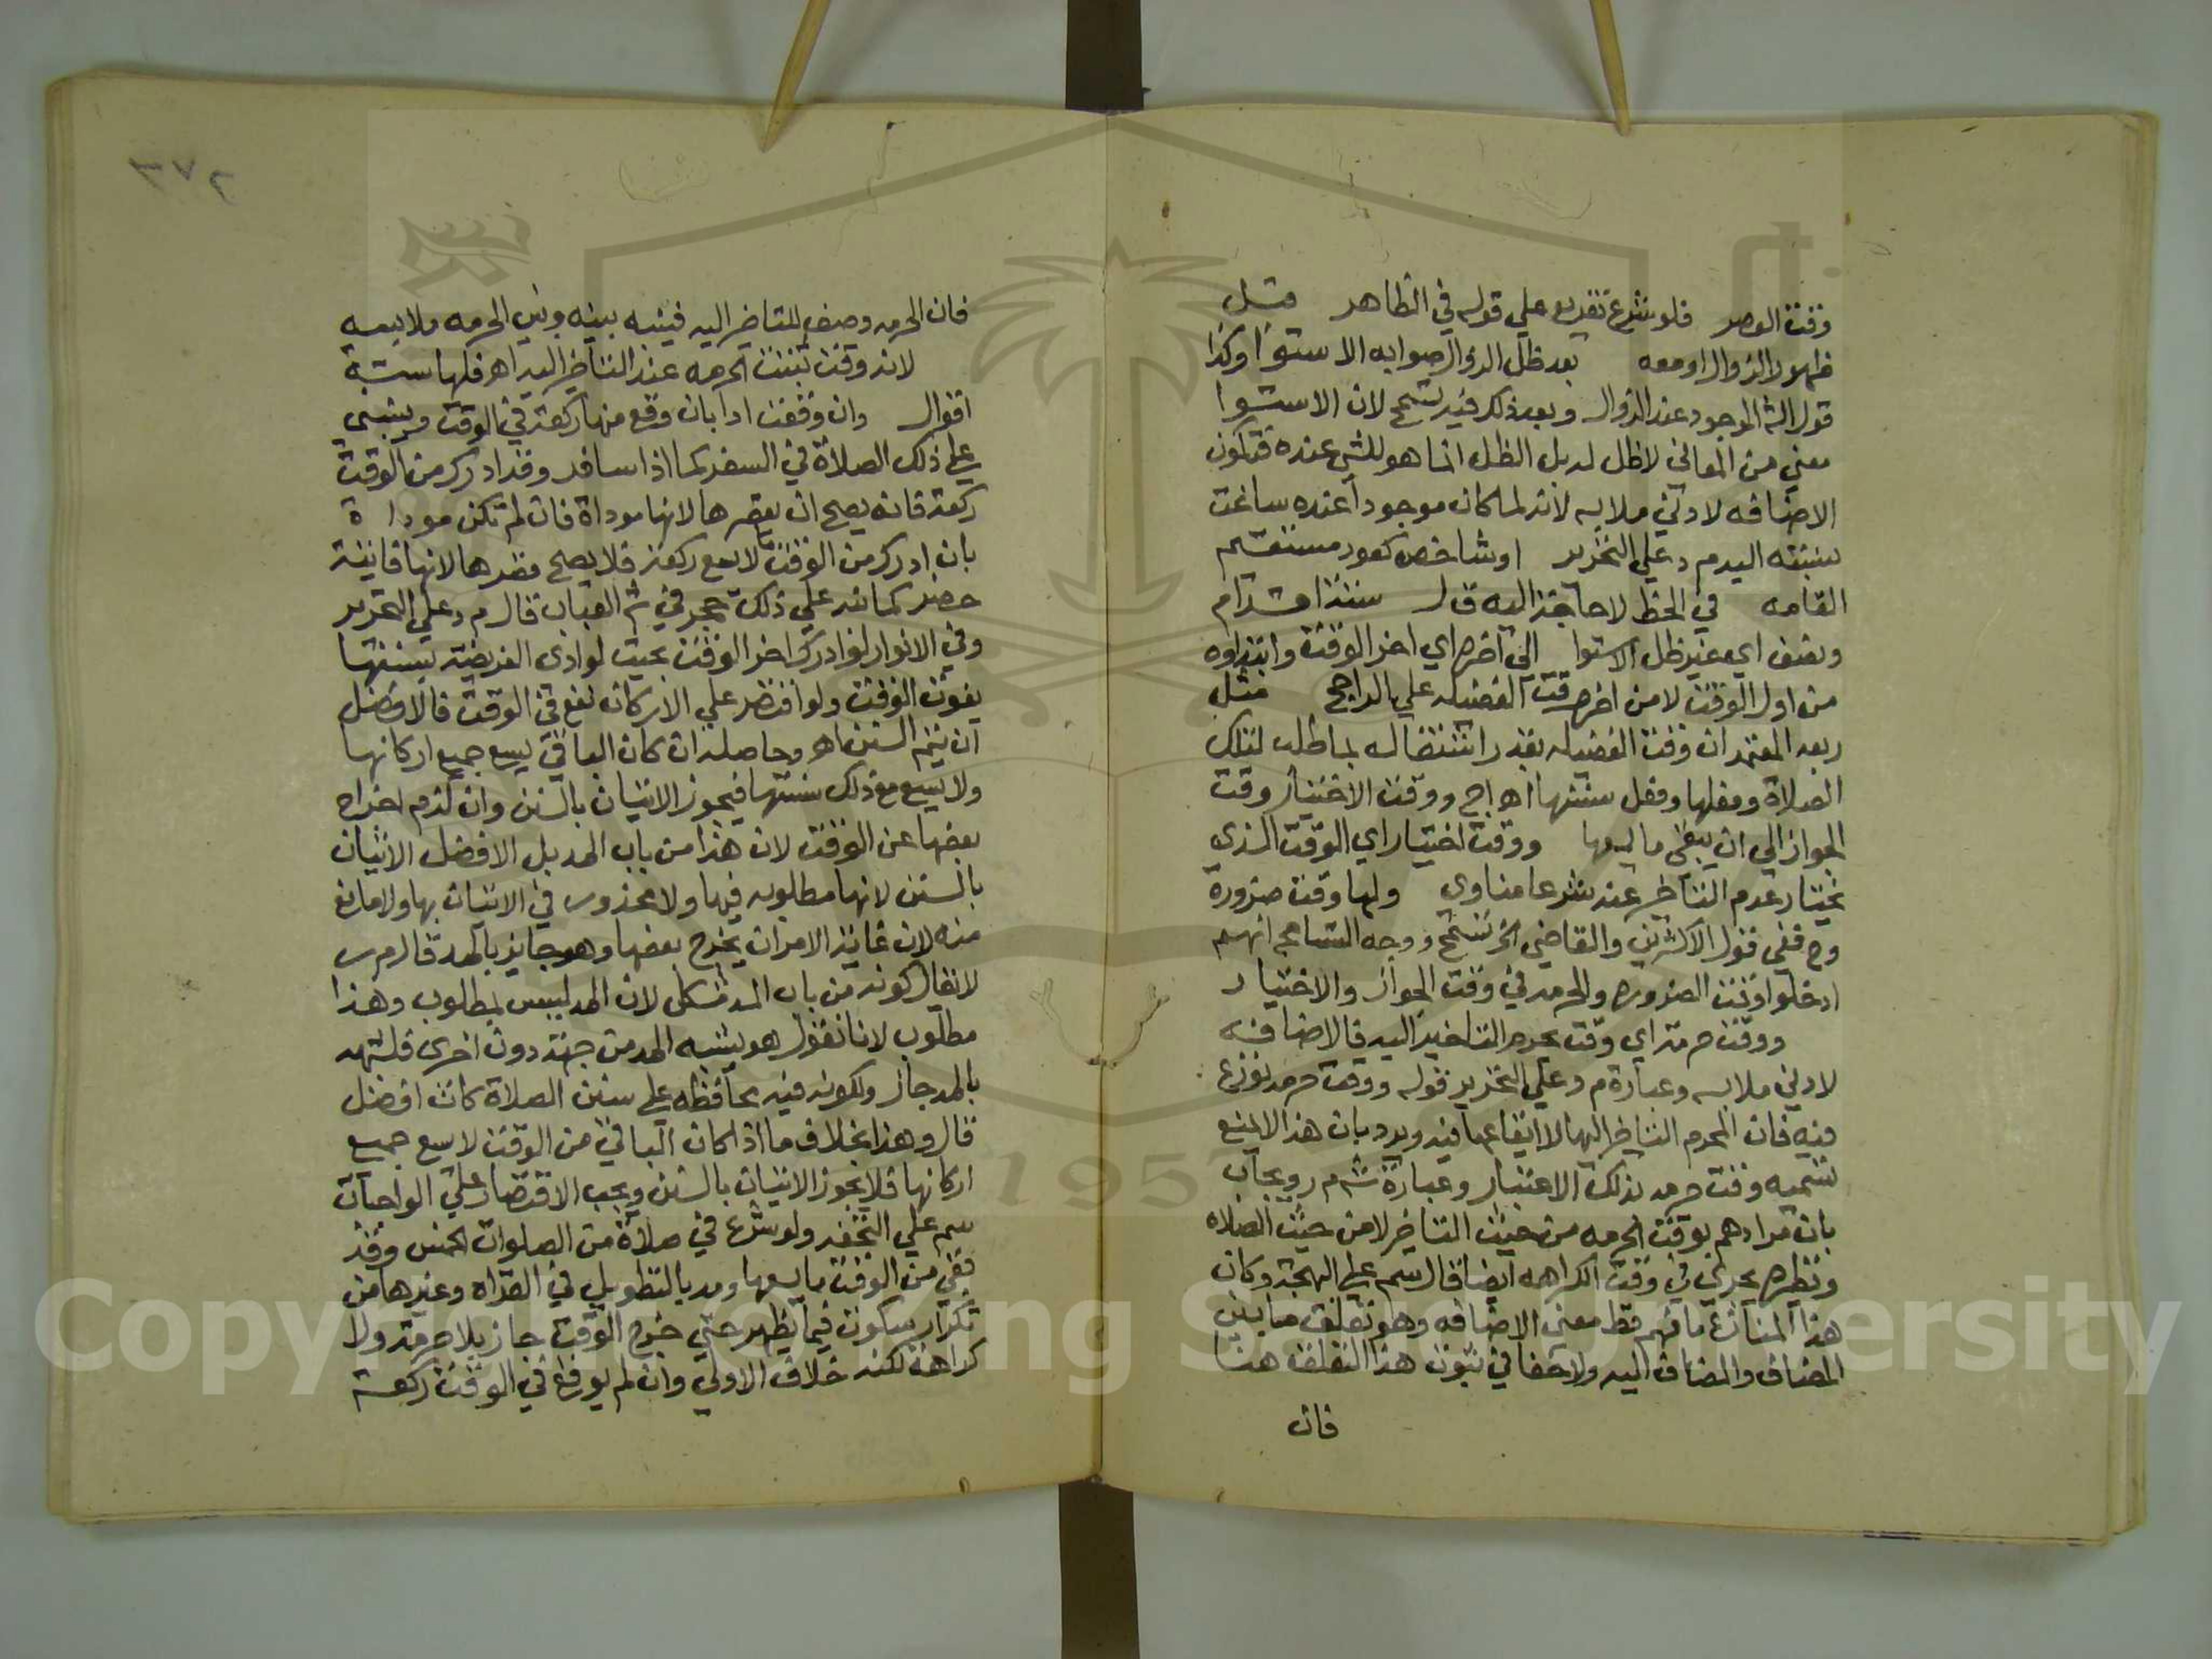 وقت العصر فلو شرع تفريع علي قوله في الظاهر مثل
ظهور الزوال او معه بعد ظل الزوال صوابه الاستوا وكذا
قول الش الموجود عند الزوال وبعد ذلك فيه تسمح لان الاستوا
معني من المعاني لا ظل له بل الظل انما هو للشي عنده فتكون
الاضافه لادني ملابسه لانه لما كان موجودا عنده ساغت
نسبته اليه م د علي التحرير او شاخص كعود مستقيم
القامه في الخط لا حاجة اليه ق ل ستة اقدام
ونصف اي غير ظل الاستوا الي اخره اي اخر الوقت وابتداوه
من اول الوقت لا من اخر وقت الفضيله علي الراجح مثل
ربعه المعتمد ان وقت الفضيله بقدر اشتغاله بما طلب لتلك
الصلاة وفعلها وفعل سنتها اهـ اج ووقت الاختيار وقت
الجواز الي ان يبقي ما يسعها ووقت اختيار اي الوقت الذي
يختار عدم التاخير عنه شرعا مناوي ولها وقت ضرورة
وح ففي قول الاكثرين والقاضي الخ تسمح ووجه التسامح انهم
ادخلوا وقت الضروره والحرمه في وقت الجواز والاختيار
ووقت حرمة اي وقت يحرم التاخير اليه فالاضافه
لادني ملابسه وعبارة م د علي التحرير قوله ووقت حرمه نوزع
فيه فان المحرم التاخير اليها لا ايقاعها فيه ويرد بان هذا لا يمنع
تسميه وقت حرمه بذلك الاعتبار وعبارة ش م ر ويجاب
بان مرادهم بوقت الحرمه من حيث التاخير لا من حيث الصلاه
ونظيره يجري في وقت الكراهه ايضا قال سم علي البهجة وكان
هذا المنازع ما فهم قط معني الاضافه وهو تعلق ما بين
المضاف والمضاف اليه ولا خفا في ثبوت هذا التعلق هنا
فان
٢٧٣
فان الحرمه وصف للتاخير اليه فيشبه بينه وبين الحرمه ملابسه
لانه وقت ثبتت الحرمه عند التاخير اليه اهـ فلها ستة
اقوال وان وقعت ادا بان وقع منها ركعة في الوقت وينبني
علي ذلك الصلاة في السفر كما اذا سافر وقد ادرك من الوقت
ركعة فانه يصح ان يقصرها لانها موداة فان لم تكن موداة
بان ادرك من الوقت ما لا يسع ركعة فلا يصح قصرها لانها فايتة
حضر كما نبه علي ذلك حجر في ش العباب قال م د علي التحرير
وفي الانوار لو ادرك اخر الوقت بحيث لو ادي الفريضة بسننها
يفوت الوقت ولو اقتصر علي الاركان تقع في الوقت فالافضل
ان يتم السنن اهـ وحاصله ان كان الباقي يسع جميع اركانها
ولا يسع مع ذلك سننها فيجوز الاتيان بالسنن وان لزم اخراج
بعضها عن الوقت لان هذا من باب المد بل الافضل الاتيان
بالسنن لانها مطلوبه فيها ولا محذور في الاتيان بها ولا مانع
منه لان غاية الامر ان يخرج بعضها وهو جايز بالمد قال م ر
لا يقال كونه من باب المد مشكل لان المد ليس بمطلوب وهذا
مطلوب لانا نقول هو يشبه المد من جهة دون اخري فلشبهه
بالمد جاز ولكونه فيه محافظه علي سنن الصلاة كان افضل
قال وهذا بخلاف ما اذا كان الباقي من الوقت لا يسع جميع
اركانها فلا يجوز الاتيان بالسنن ويجب الاقتصار علي الواجبات
سم علي التحفه ولو شرع في صلاة من الصلوات الخمس وقد
بقي من الوقت ما يسعها ومد بالتطويل في القراه وغيرها من
تكرار سكون فيما يظهر حتي خرج الوقت جاز بلا حرمة ولا
كراهة لكنه خلاف الاولي وان لم يوقع في الوقت ركعة